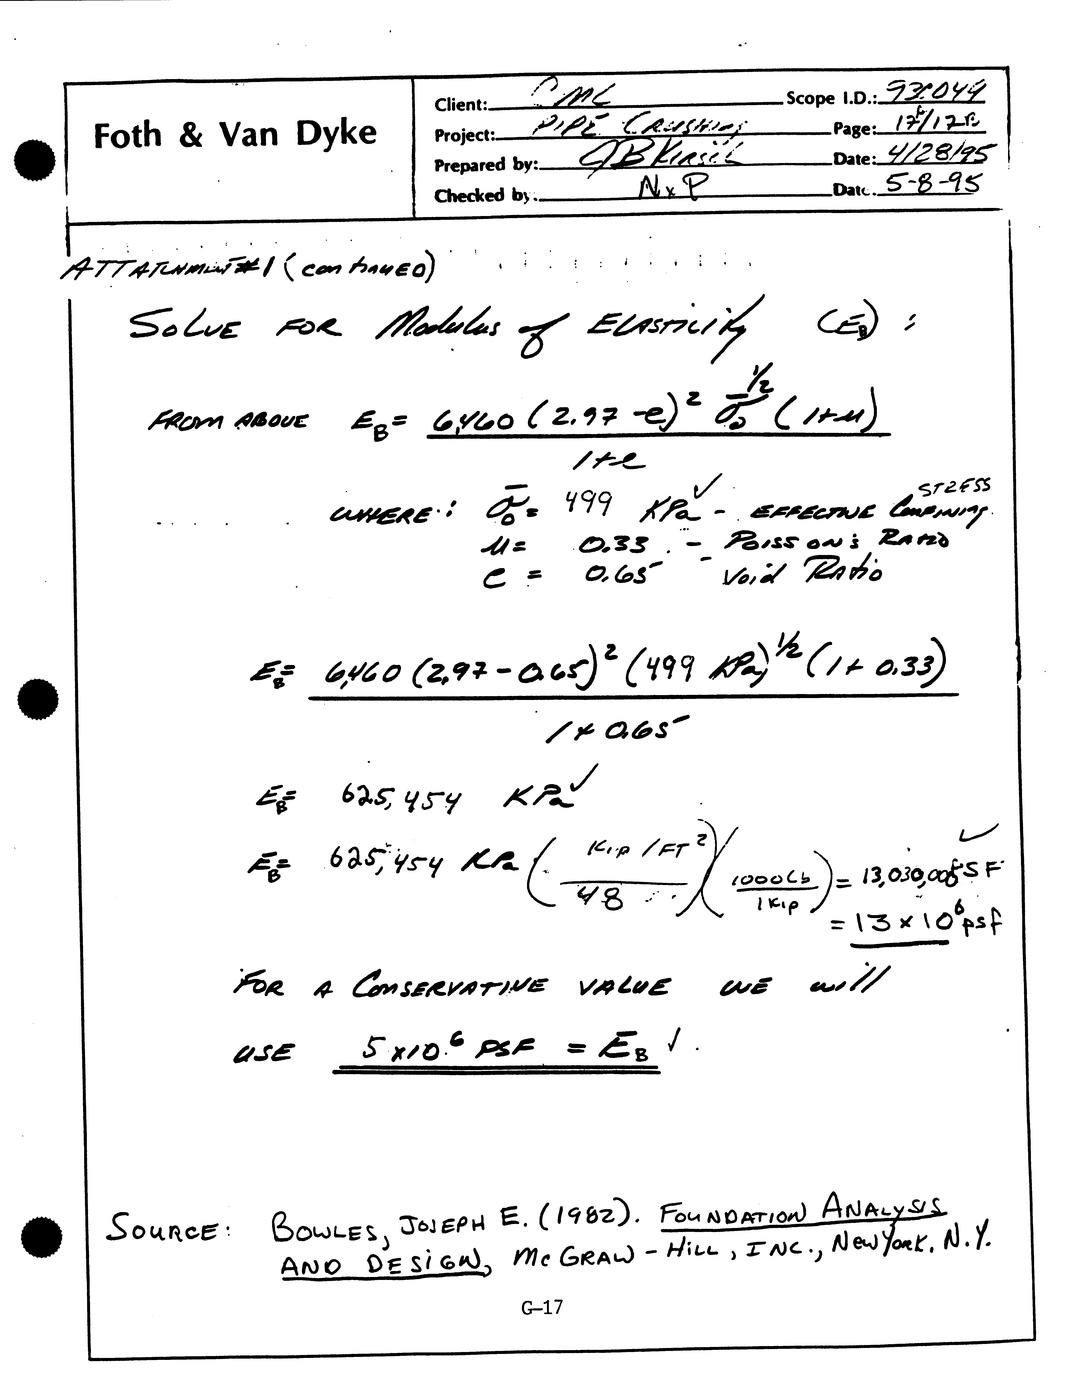 Foth & Van Dyke
Client: CMC
Scope I.D.: 93C049
Project: PIPE CRUSHING
Page: 17/17
Prepared by: JBKirsch
Date: 4/28/95
Checked by: NXP
Date: 5-8-95
ATTATCHMENT #1 (continued)
SOLVE FOR Modulus of ELASTICITY (E_B) :
FROM ABOVE E_B = 6,460 (2.97 - e)² σ̄₀^1/2 (1+μ)
1+e
WHERE: σ̄₀ = 499 KPa ✓ - EFFECTIVE CONFINING STRESS
μ = 0.33 - POISSON'S RATIO
e = 0.65 - Void RATIO
E_B = 6,460 (2.97 - 0.65)² (499 KPa)^1/2 (1 + 0.33)
1 + 0.65
E_B = 625,454 KPa ✓
E_B = 625,454 KPa (Kip/FT² / 48) (1000 Lb / 1 Kip) = 13,030,000 PSF ✓
= 13 x 10⁶ psf
FOR A CONSERVATIVE VALUE WE will
USE 5 x10⁶ PSF = E_B ✓
SOURCE: BOWLES, JOSEPH E. (1982). FOUNDATION ANALYSIS
AND DESIGN, McGRAW-HILL, INC., New York, N.Y.
G-17